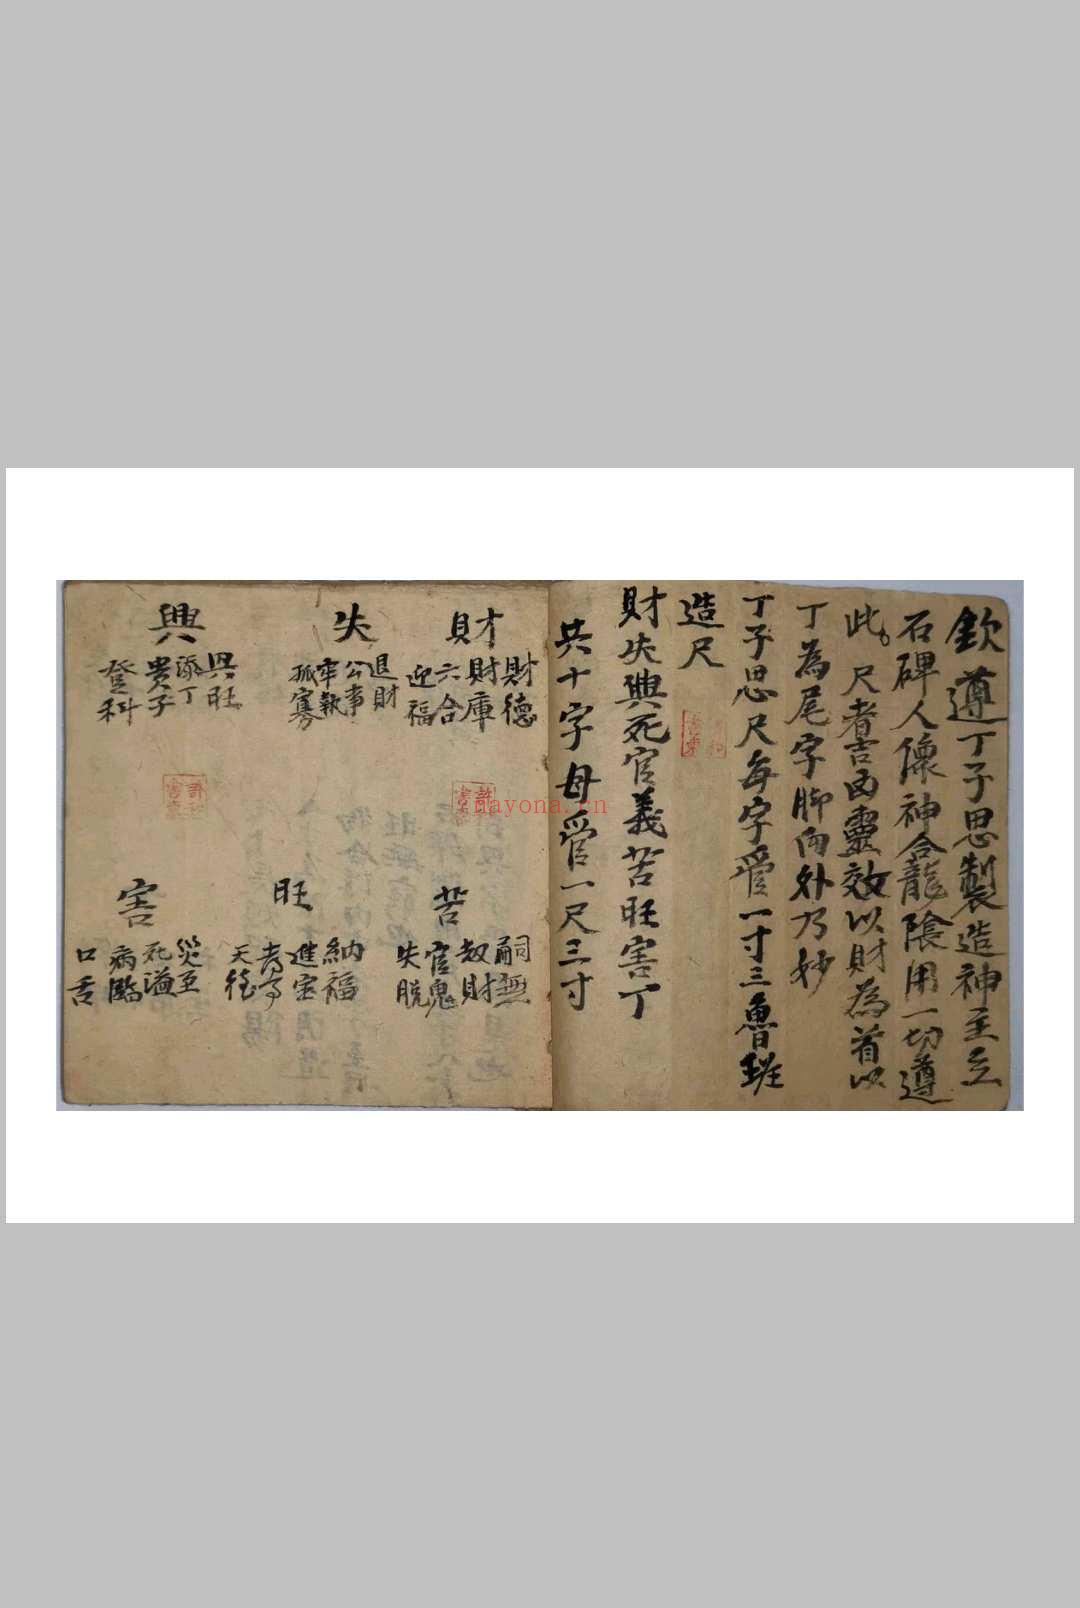 欽遵丁子思製造神主立
石碑人像神合龍陰用一切遵
此 尺者吉凶靈效以財為首以
丁為尾字脚向外乃妙
丁子思尺每字管一寸三魯班
造尺
財失興死官義苦旺害丁
共十字母管一尺三寸
財
財德
財庫
六合
迎福
失
退財
公事
牢執
孤寡
興
興旺
添丁
貴子
登科
苦
嗣無
劫財
官鬼
失脫
旺
納福
進宝
天
害
災至
死
病臨
口舌
nayona.cn